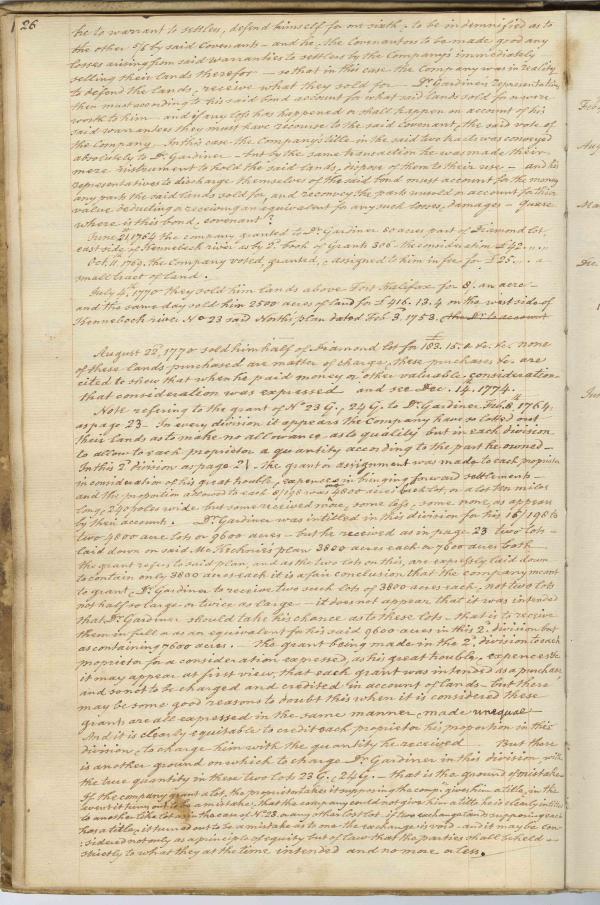 26
he to warrant to settlers, defend himself for one sixth, to be indemnified as to
the other 5/6 by said Covenant - and he, the Covenantors to be made good any
losses arising from said warranties to settlers by the Company's immediately
selling their lands therefor - so that in this case the Company was in reality
to defend the lands, receive what they sold for - Dr. Gardiner's representatives
then must according to his said bond account for what said lands sold for or were
worth to him - and if any loss has happened or shall happen on account of his
said warrantees they must have recourse to the said Covenant, the said vote of
the Company - In this case the Company's title in the said two tracts was conveyed
absolutely to Dr. Gardiner - but by the same transaction he was made their
mere instrument to hold the said lands, dispose of them to their use - and his
representatives to discharge themselves of the said bond must account for the money
any parts the said lands sold for, and reconvey the parts unsold or account for their
value deducting or receiving an equivalent for any such losses, damages - Quere
where is this bond, covenant?
June 21, 1764 the company granted to Dr. Gardiner 80 acres part of Diamond lot
east side of Kennebeck river as by 2d. Book of Grants 306 - the consideration £42 .. ..
Oct. 11th. 1769, the Company voted, granted, & assigned to him in fee for £25 .. .. a
small tract of land.
July 4th. 1770 they sold him lands above Fort Halifax for 8/ an acre -
and the same day sold him 2500 acres of land for £916.13.4 on the west side of
Kennebeck river No. 23 said North's plan dated Feb. 3d. 1753.
August 22d, 1770 sold him half of Diamond lot for £183.15.0 &c. &c. none
of these lands purchased are matter of charge, these purchases &c. are
cited to shew that when he paid money or other valuable consideration
that consideration was expressed and see Dec. 14th. 1774.
Note refering to the grant of No. 23 G., 24 G. to Dr. Gardiner Feb. 8th. 1764.
as page 23 - In every division it appears the Company have so lotted out
their lands as to make no allowance as to quality but in each division
to allow to each proprietor a quantity according to the part he owned -
In this 2d. division as page 21 - the grant or assignment was made to each proprietor
in consideration of his great trouble, expences in bringing forward settlements -
and the proportion allowed to each 8/198 was 4800 acres each lot, or a lot ten miles
long, 240 poles wide but some received more, some less, some none, as appears
by their accounts. Dr. Gardiner was intitled in this division for his 16/198 to
two 4800 acre lots or 9600 acres - but he received as in page 23 two lots -
laid down on said McKechnie's plan 3800 acres each or 7600 acres both
the grant refers to said plan, and as the two lots on this, are expressly laid down
to contain only 3800 acres each it is a fair conclusion that the company meant
to grant, Dr. Gardiner to receive two such lots of 3800 acres each, not two lots
not half so large or twice as large - it does not appear that it was intended
that Dr. Gardiner should take his chance as to these lots - that is to receive
them in full or as an equivalent for his said 9600 acres in this 2d. division but
as containing 7600 acres. - The grant being made in the 2d. division to each
proprietor for a consideration expressed, as his great trouble, expences &c
it may appear at first view, that each grant was intended as a purchase,
and so not to be charged and credited in account of lands - but there
may be some good reasons to doubt this when it is considered these
grants are all expressed in the same manner, made unequal -
And it is clearly equitable to credit each proprietor his proportion in this
division, to charge him with the quantity he received But there
is another ground on which to charge Dr. Gardiner in this division with
the true quantity in these two lots 23 G., 24 G. - that is the ground of mistake
If the company grant a lot, the proprietor takes it supposing the comp. gives him a title, in the
event it turns out to be a mistake, that the company could not give him a title he is clearly intitled
to another like lot as in the case of No. 23. or any other lost lot - if two exchange lands supposing each
has a title, it turned out to be a mistake as to one the exchange is void - and it may be con-
:sidered not only as a principle of equity but of law that the parties shall be held -
strictly to what they at the time intended and no more or less.
Feb
Aug
Ma
Dec